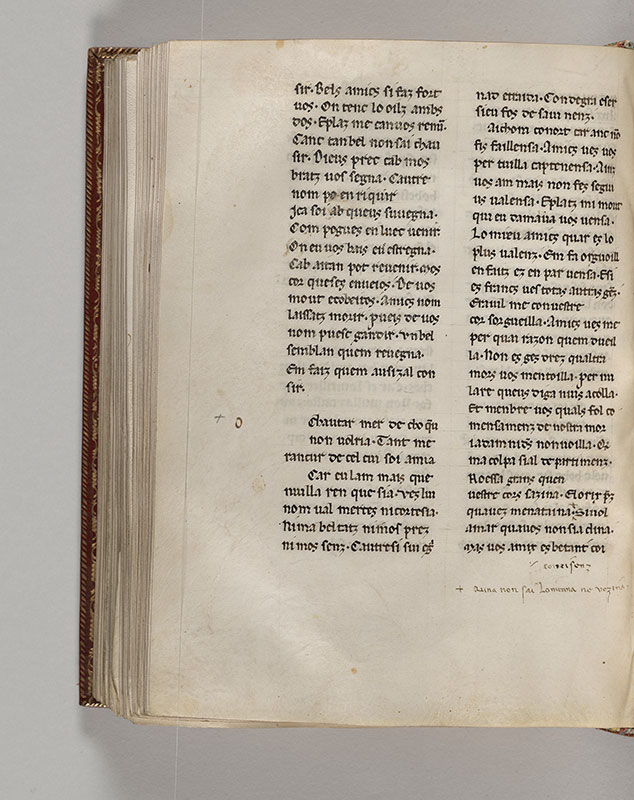 sir. Bels amics si faz fort
uos. On tenc lo oilz ambs
dos. E plaz me can uos remir.
Canc tan bel non sai chau
sir. Dieus prec cab mos
bratz uos segna. Cautre
nom po en riquir
Ica soi ab queus suuegna.
Com pogues en luec uenir
On eu uos bais eus estregna.
Cab aitan pot reuenir. mos
cor ques es enueios. De uos
mout e cobeitos. Amics nom
laissatz morir. pueis de uos
nom puesc gandir. un bel
semblan quem reuegna.
Em faiz quem ausizal con
sir.
Chantar mer de cho qu
non uolria. Tant me
rancur de cel cui soi amia
Car eu lam mais que
nuilla ren que sia. uez lui
nom ual merces ni cortesia.
Ni ma beltatz ni mos prez
ni mos senz. Cautresi sui
nad e traida. Con degra eser
sieu fos desauinenz.
Aichom conort car anc no
fis faillensa. Amics ues uos
per nuilla captenensa. Anz
uos am mais non fes segui
us ualensa. E platz mi mout
qui eu damar uos uensa.
Lo mieu amics quar es lo
plus ualenz. Em fa orguoill
en faitz ez en paruensa. E si
es francs ues totas autras
merauil me con uestre
cor sorgueilla. Amics ues me
per quai razon quem dueil
la. Non es ges drez quautra
mors uos mentoilla. per nu
la re queus diga nius acolla.
Et menbre uos quals fo lo co
mensamenz de nostramor
ia damnideus non uoilla. Qen
ma colpa sial departimenz.
Roessa granz quen
uestre cors saizina. E lo riz prez
quauez menataina. Si nol
amar quauos non sia clina.
Mas uos amix es be tant coi
conoisenz
+ Auna non sai lointana ne uezina